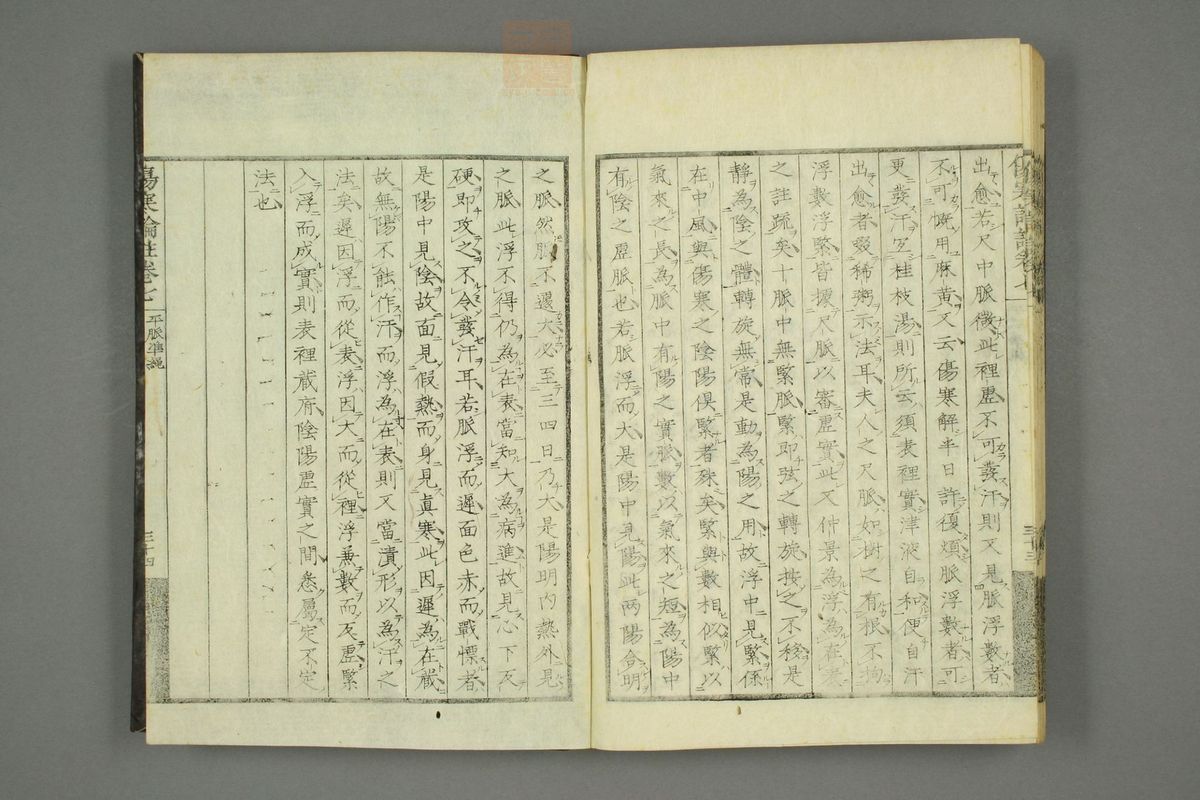 出愈若尺中脈微此裡虛不可發汗則又見脈浮數者
不可慨用麻黃又云傷寒解半日許復煩脈浮數者可
更發汗宜桂枝湯則所云須表裡實津液自和便自汗
出愈者啜稀粥示法耳夫人之尺脈如樹之有根不拘
浮數浮緊皆據尺脈以審虛實此又仲景為浮為在表
之註疏矣十脈中無緊脈緊即弦之轉旋按之不移是
靜為陰之體轉旋無常是動為陽之用故浮中見緊係
在中風與傷寒之陰陽俱緊者殊矣緊與數相似緊以
氣來之長為脈中有陽之實脈數以氣來之短為陽中
有陰之虛脈也若脈浮而大是陽中見陽此兩陽合明
之脈然脈不遽大必至三四日乃大是陽明內熱外見
之脈此浮不得仍為在表當知大為病進故見心下反
硬即攻之不令發汗耳若脈浮而遲面色赤而戰慄者
是陽中見陰故面見假熱而身見真寒此因遲為在藏
故無陽不蝕作汗而浮為在表則又當漬形以為汗之
法矣遲因浮而從表浮因大而從裡浮兼數而反虛緊
入浮而成實則表裡藏府陰陽虛實之間悉屬定不定
法也
傷寒論註卷七
平脈準繩
三十四